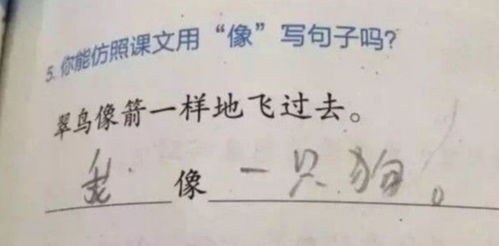 5. 你能仿照课文用“像”写句子吗？
翠鸟像箭一样地飞过去。
我 像 一只狗。